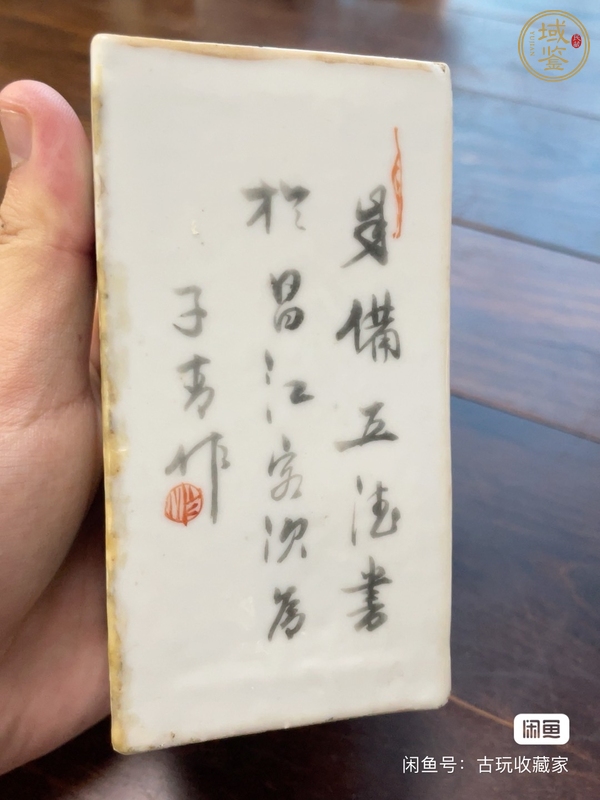 身備五德書
於昌江客次為
子青作
域鑒
闲鱼
闲鱼号：古玩收藏家